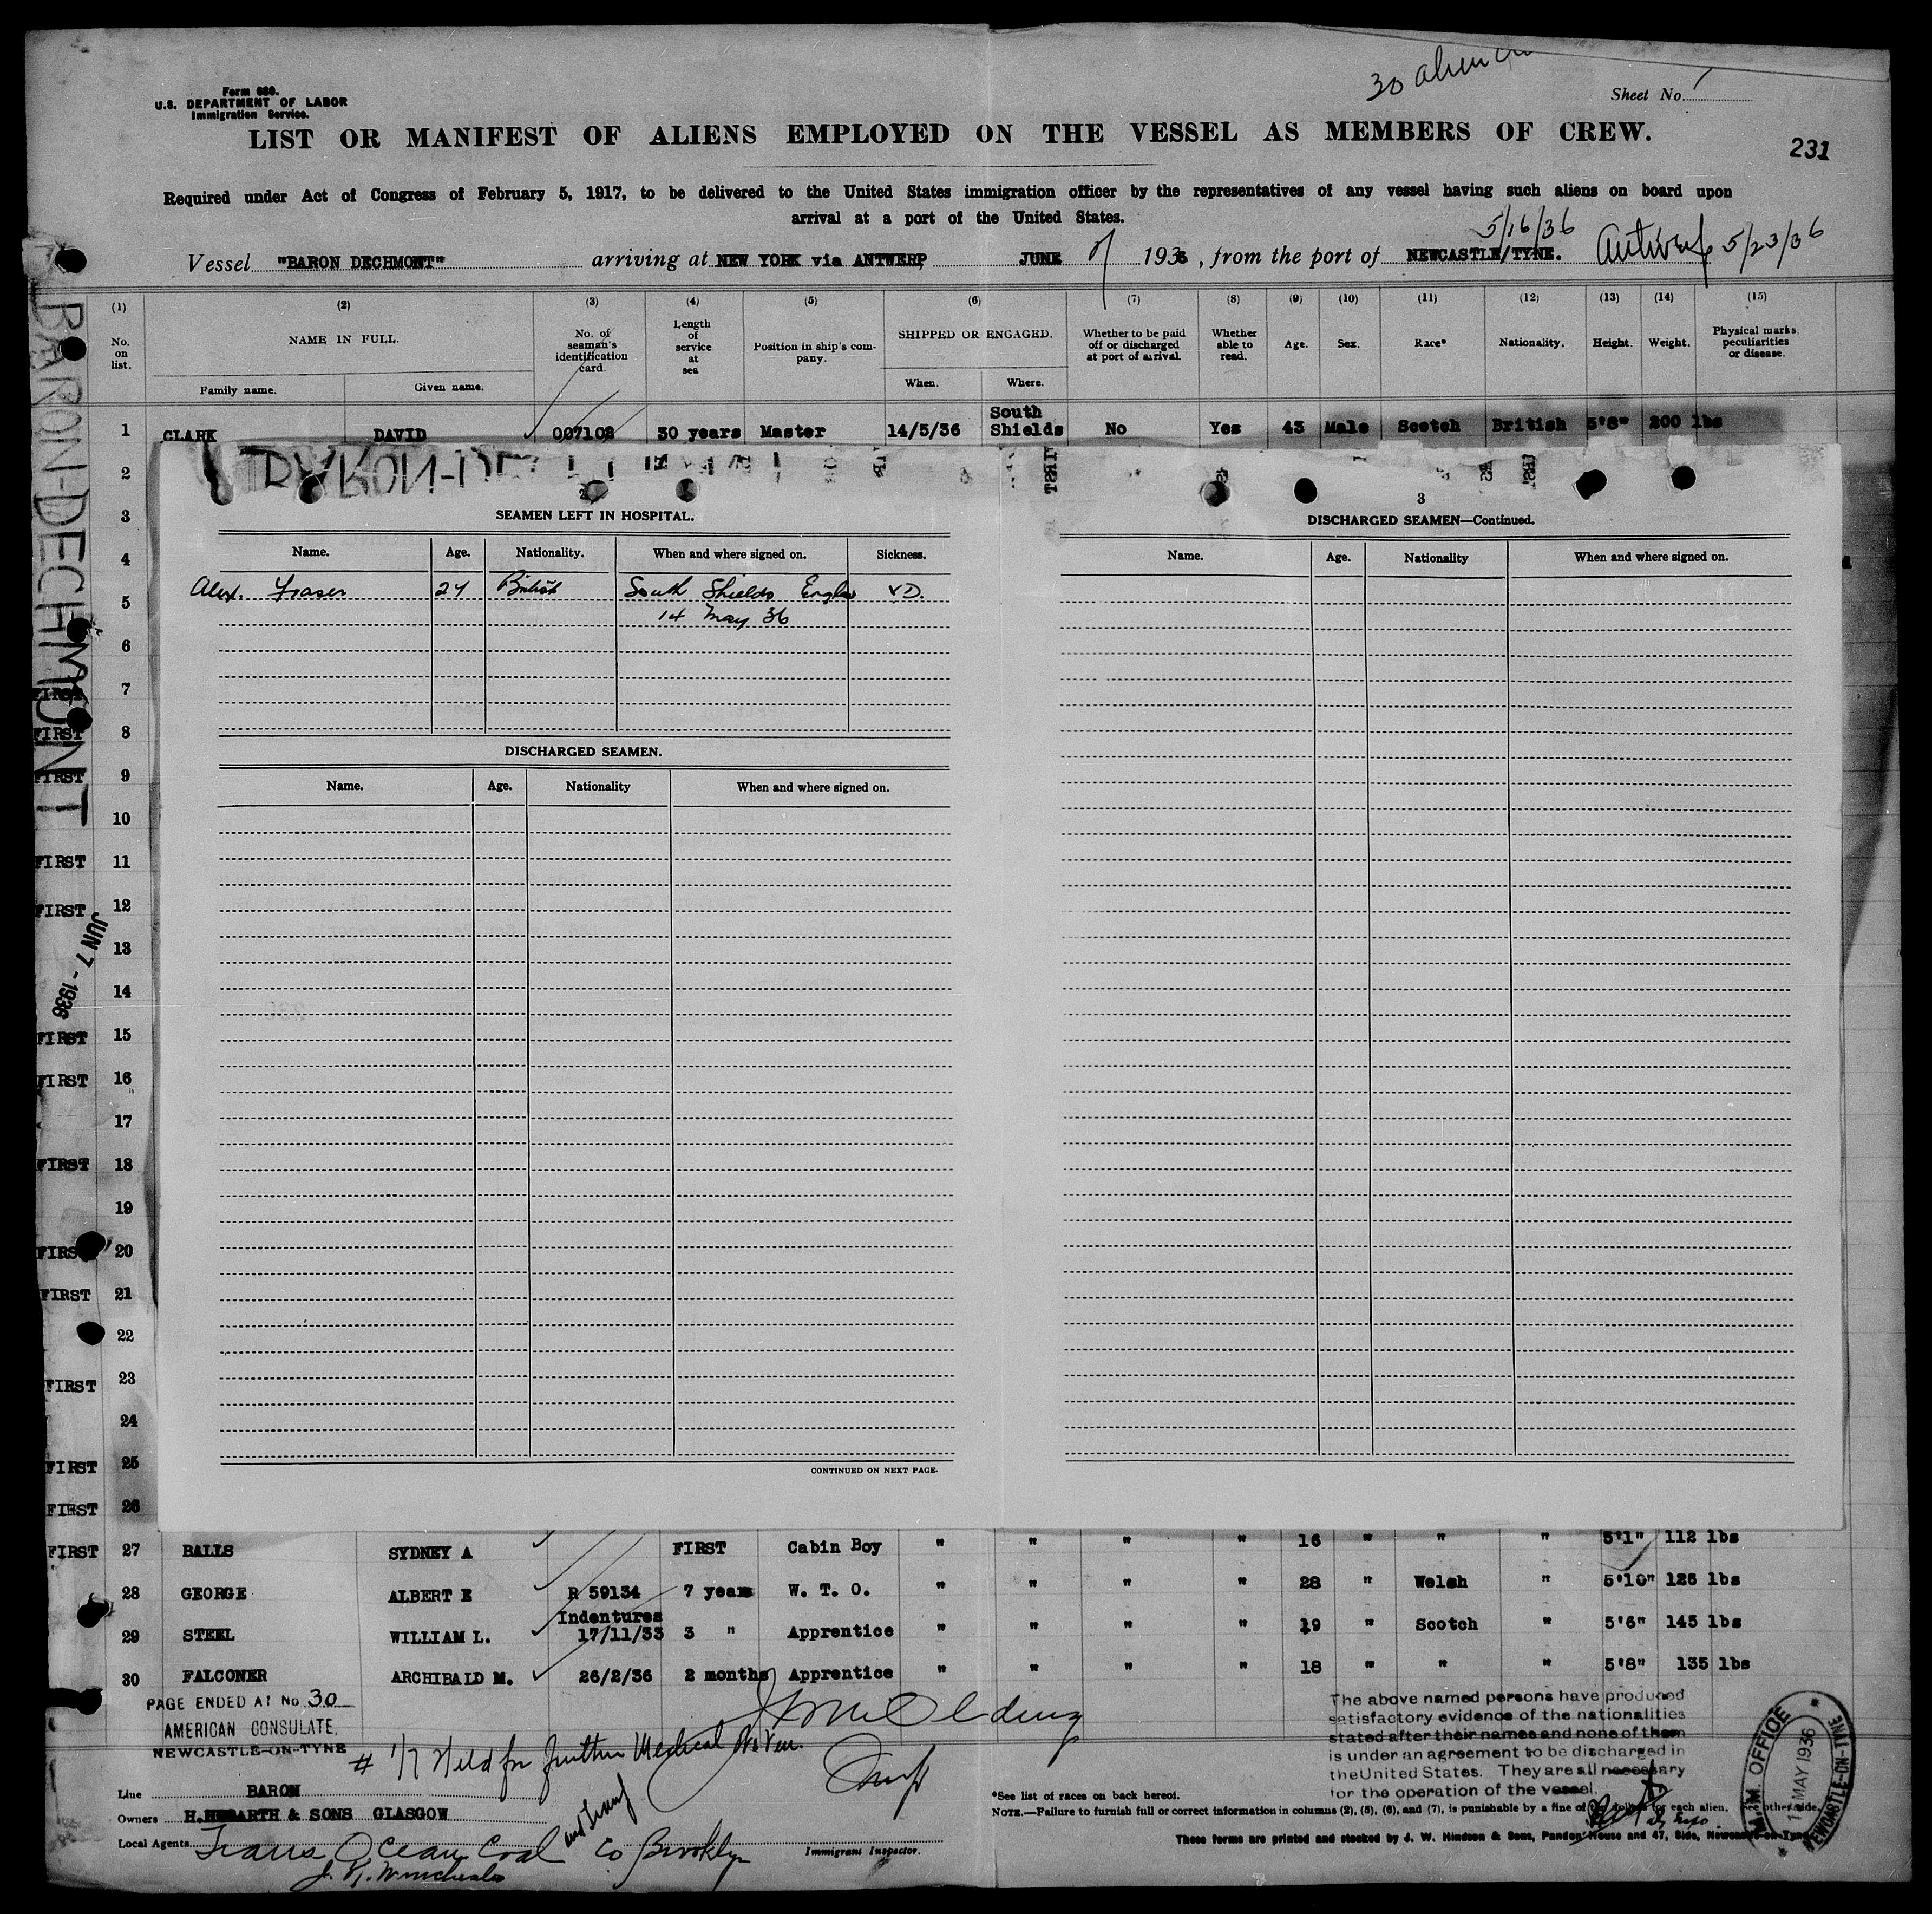 30 alien
Form 680.
U.S. DEPARTMENT OF LABOR
Immigration Service.
Sheet No. 1
LIST OR MANIFEST OF ALIENS EMPLOYED ON THE VESSEL AS MEMBERS OF CREW.
231
Required under Act of Congress of February 5, 1917, to be delivered to the United States immigration officer by the representatives of any vessel having such aliens on board upon
arrival at a port of the United States.
5/16/36
Vessel "BARON DECHMONT" arriving at NEW YORK via ANTWERP JUNE 7 1936, from the port of NEWCASTLE/TYNE. Antwerp 5/23/36
(1) (2) (3) (4) (5) (6) (7) (8) (9) (10) (11) (12) (13) (14) (15)
No. on list. NAME IN FULL. No. of seaman's identification card. Length of service at sea Position in ship's company. SHIPPED OR ENGAGED. Whether to be paid off or discharged at port of arrival. Whether able to read. Age. Sex. Race* Nationality. Height. Weight. Physical marks, peculiarities or disease.
Family name. Given name. When. Where.
1 CLARK DAVID 007102 30 years Master 14/5/36 South Shields No Yes 43 Male Scotch British 5'8" 200 lbs
BARON-DECHMONT
2
3
4
5
6
FIRST 7
FIRST 8
FIRST 9
10
FIRST 11
FIRST 12
13
JUN 7 - 1936
14
FIRST 15
FIRST 16
17
FIRST 18
19
FIRST 20
FIRST 21
22
FIRST 23
24
FIRST 25
FIRST 26
2
SEAMEN LEFT IN HOSPITAL.
Name. Age. Nationality. When and where signed on. Sickness.
Alex. Fraser 24 British South Shields VD.
14 May 36
DISCHARGED SEAMEN.
Name. Age. Nationality When and where signed on.
CONTINUED ON NEXT PAGE.
3
DISCHARGED SEAMEN—Continued.
Name. Age. Nationality When and where signed on.
FIRST 27 BALLS SYDNEY A FIRST Cabin Boy " " " " 16 " " " 5'1" 112 lbs
28 GEORGE ALBERT E R 59134 7 years W. T. O. " " " " 28 " Welsh " 5'10" 126 lbs
29 STEEL WILLIAM L. Indentures 17/11/33 3 " Apprentice " " " " 19 " Scotch " 5'6" 145 lbs
30 FALCONER ARCHIBALD M. 26/2/36 2 months Apprentice " " " " 18 " " " 5'8" 135 lbs
PAGE ENDED AT No. 30
AMERICAN CONSULATE,
NEWCASTLE-ON-TYNE
# 17 Held for further Medical
The above named persons have produced
satisfactory evidence of the nationalities
stated after their names and none of them
is under an agreement to be discharged in
the United States. They are all necessary
for the operation of the vessel.
M.M. OFFICE
11 MAY 1936
NEWCASTLE-ON-TYNE
Line BARON
Owners H.HOGARTH & SONS GLASGOW
Local Agents Trans Ocean Coal and Co Brooklyn
J. Winchester
Immigrant Inspector.
*See list of races on back hereof.
NOTE.—Failure to furnish full or correct information in columns (2), (5), (6), and (7), is punishable by a fine of ten dollars for each alien. See other side.
These forms are printed and stocked by J. W. Hindson & Sons, Pandon House and 47, Side, Newcastle-on-Tyne